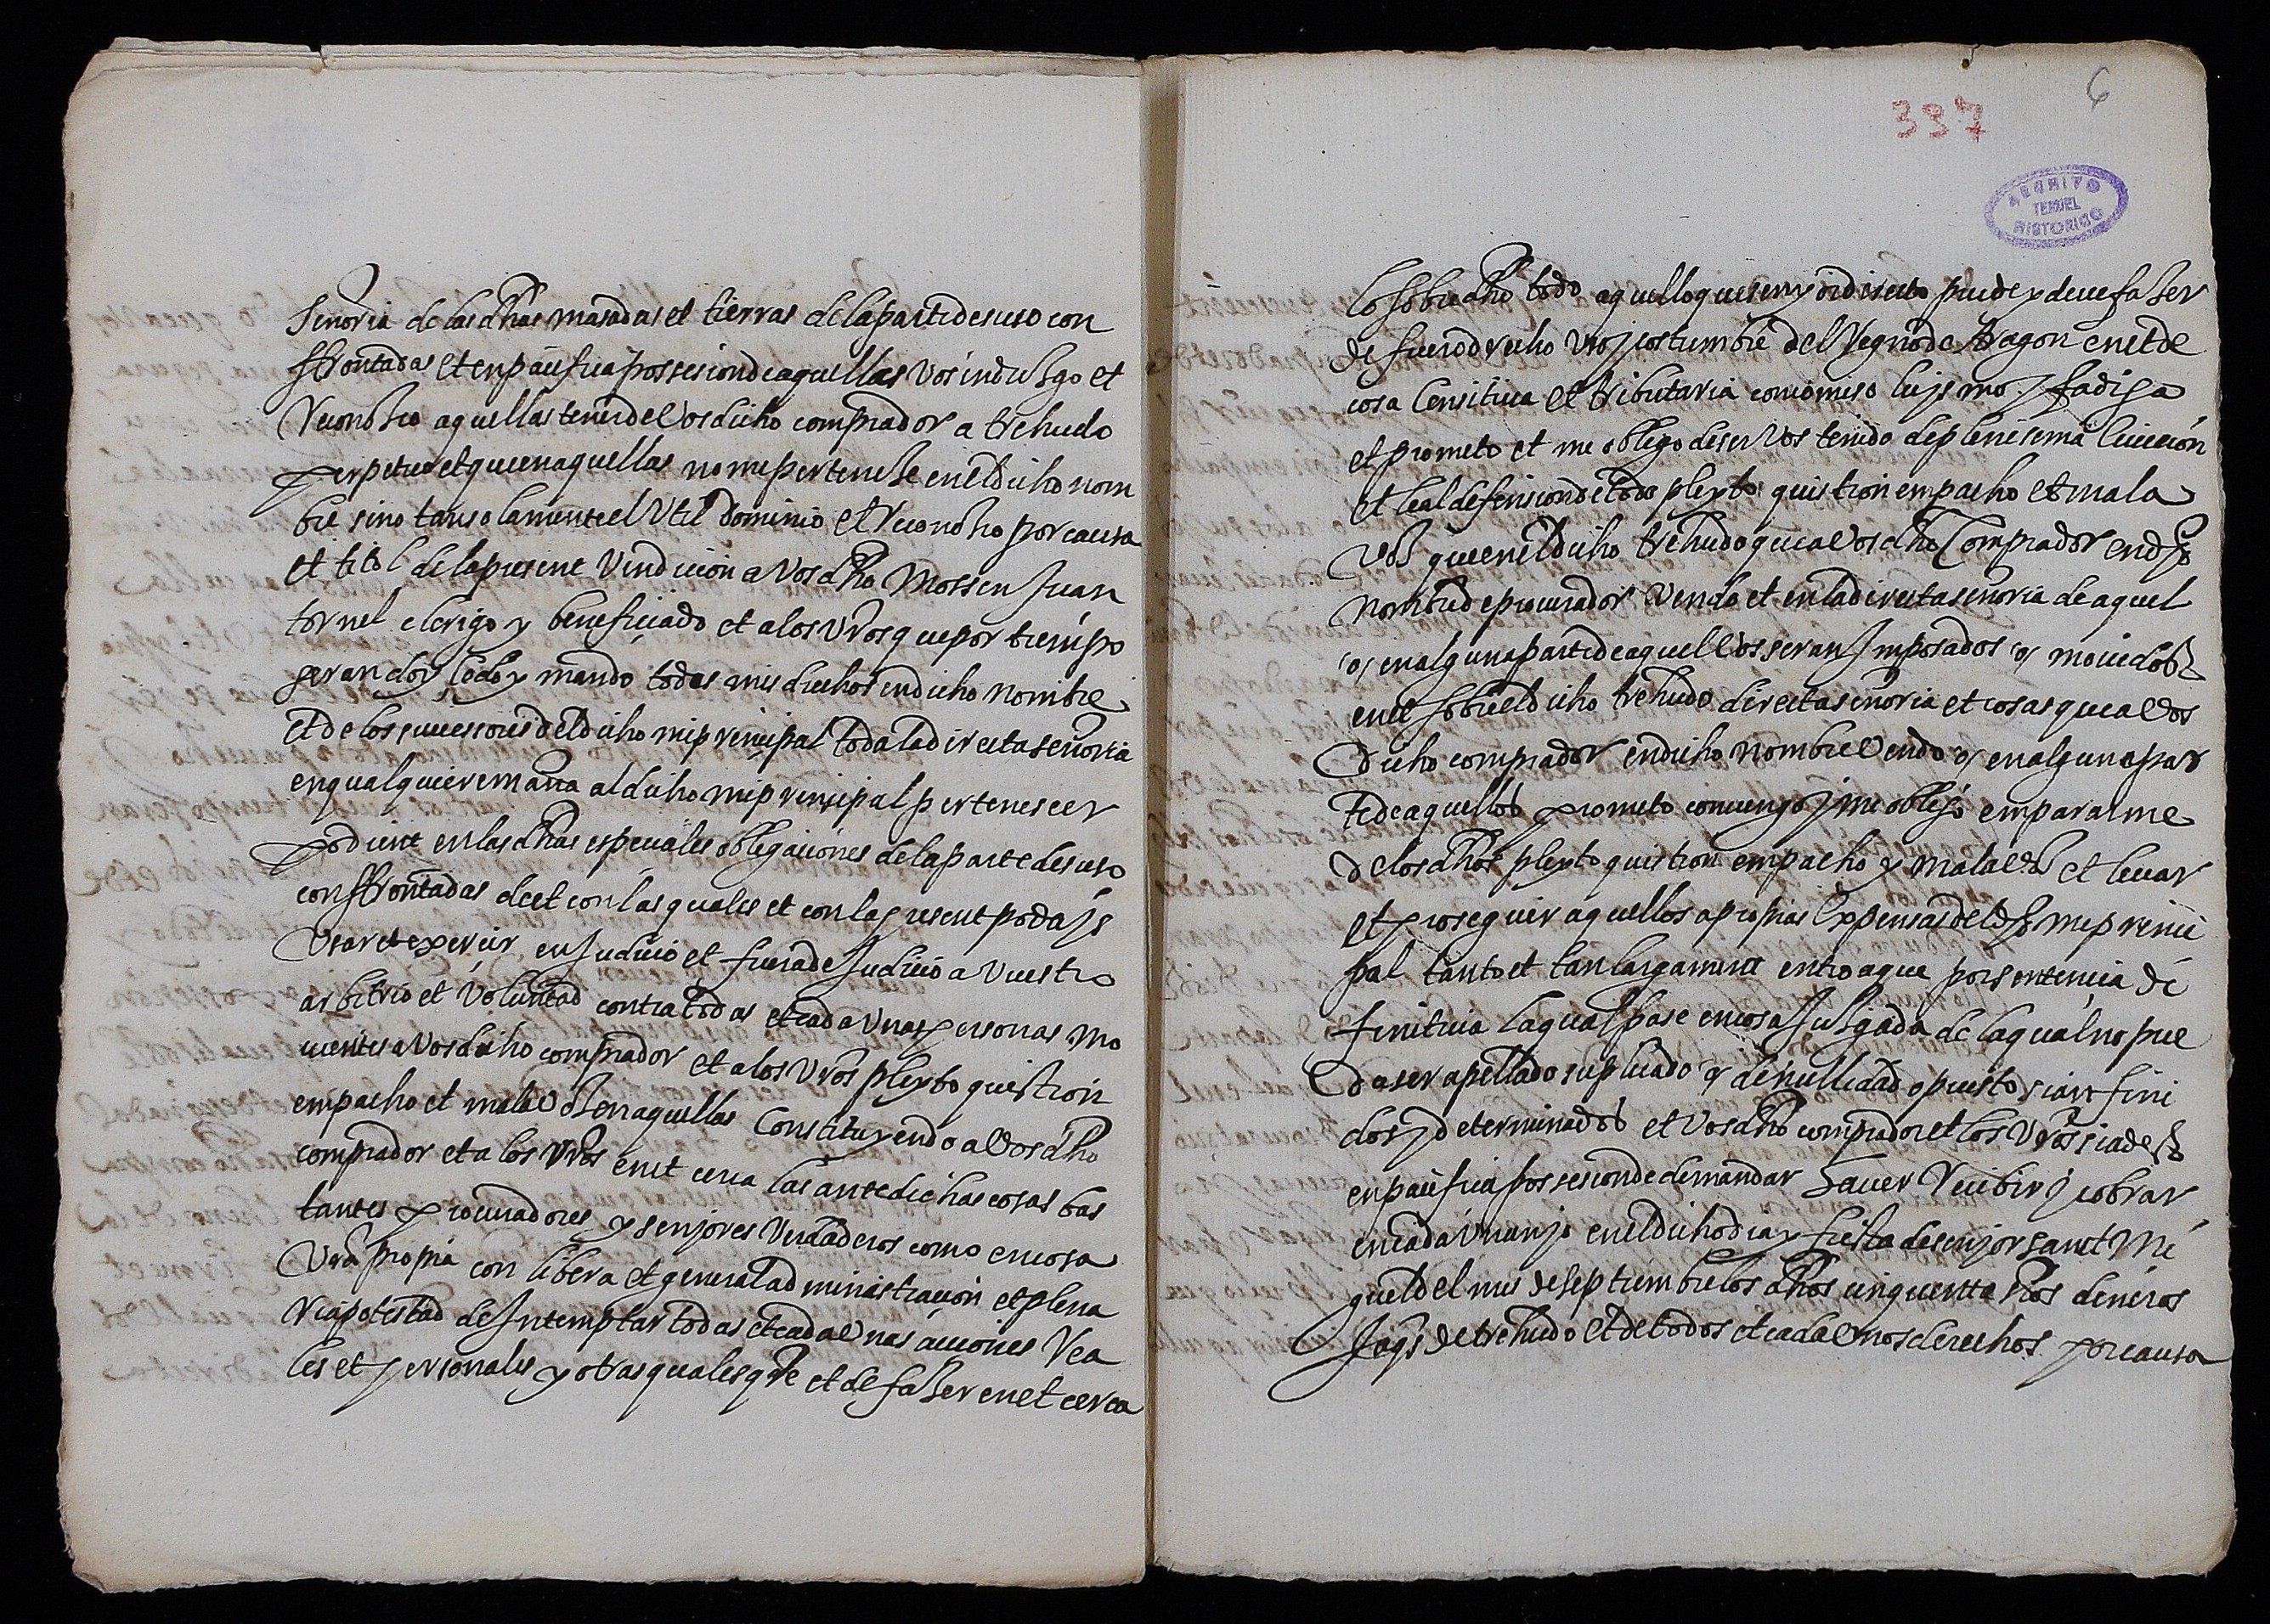 señoria de las dhas masadas et tierras de la parte desuso con
ffrontadas et en paciffica possesion de aquellas vos induzgo et
reconozco aquellas tener de vos dicho comprador a trehudo
perpetuo et que en aquellas no me pertenesze en el dicho nom
bre sino tan solamente el util dominio et reconozco por causa
et titol de la present vendicion a vos dho Mossen Juan
tornel clerigo y beneficiado et a los vros que por tiempo
seran doy cedo y mando todos mis drechos en dicho nombre
et de los successores del dicho mi principal toda la directa señoria
en qualquiere manra al dicho mi principal pertenescer
podient en las dhas especiales obligaciones de la parte desuso
conffrontadas de et con las quales et con la present podays
usar et exercir en Judicio et fuera de Judicio a vuestro
arbitrio et voluntad contra todas et cada unas personas mo
uientes a vos dicho comprador et a los vros pleyto question
empacho et mala voz en aquellas Constituyendo a vos dho
comprador et a los vros en et cerca las antedichas cosas bas
tantes procuradores y senyores verdaderos como en cosa
vra propia con libera et general administracion et plena
ria potestad de Intemptar todas et cada unas acciones rea
les et personales y otras qualesqre et de fazer en et cerca
6
397
ARCHIVO
TERUEL
HISTORICO
lo sobredho todo aquello que senyor directo puede y deue fazer
de fuero drecho uso y costumbre del Regno de Aragon en et de
cosa censitica et tributaria comiso luysmo y fadiga
et prometo et me obligo de ser vos tenido de plenisema euiccion
et leal defension de todo pleyto question empacho et mala
voz que en el dicho trehudo que a vos dho Comprador en dho
nombre de procurador vendo et en la directa señoria de aquel
o en alguna parte de aquel vos seran Imposados o mouidos
en et sobre el dicho trehudo directa señoria et cosas que a vos
dicho comprador en dicho nombre vendo o en alguna par
te de aquellos prometo conuengo y me obligo empararme
de los dhos pleyto question empacho y mala voz et leuar
et proseguir aquellos a propias Expensas del dho mi princi
pal tanto et tan largament entro a que por sentencia di
finitiua la qual pase en cosa Juzgada de la qual no pue
da ser apellado suplicado o de nullidad opuesto sian fini
dos y determinados et vos dho comprador et los vros siades
en paciffica possesion de demandar hauer recibir y cobrar
en cada un anyo en el dicho dia y fiesta de senyor sanct Mi
guel del mes de septiembre los dhos cinquenta sos dineros
Jaqs de trehudo et de todos et cada unos derechos por causa